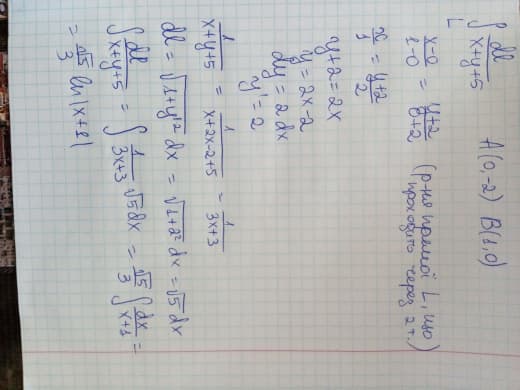 ∫_L dl/(x+y+5) A(0,-2) B(1,0)
(x-0)/(1-0) = (y+2)/(0+2) (р-ня прямої L, що
проходить через 2 т.)
x/1 = (y+2)/2
y+2 = 2x
y = 2x-2
dy = 2 dx
y' = 2
1/(x+y+5) = 1/(x+2x-2+5) = 1/(3x+3)
dl = √(1+y'²) dx = √(1+2²) dx = √5 dx
∫ dl/(x+y+5) = ∫ 1/(3x+3) √5 dx = √5/3 ∫ dx/(x+1) =
= √5/3 ln|x+1|